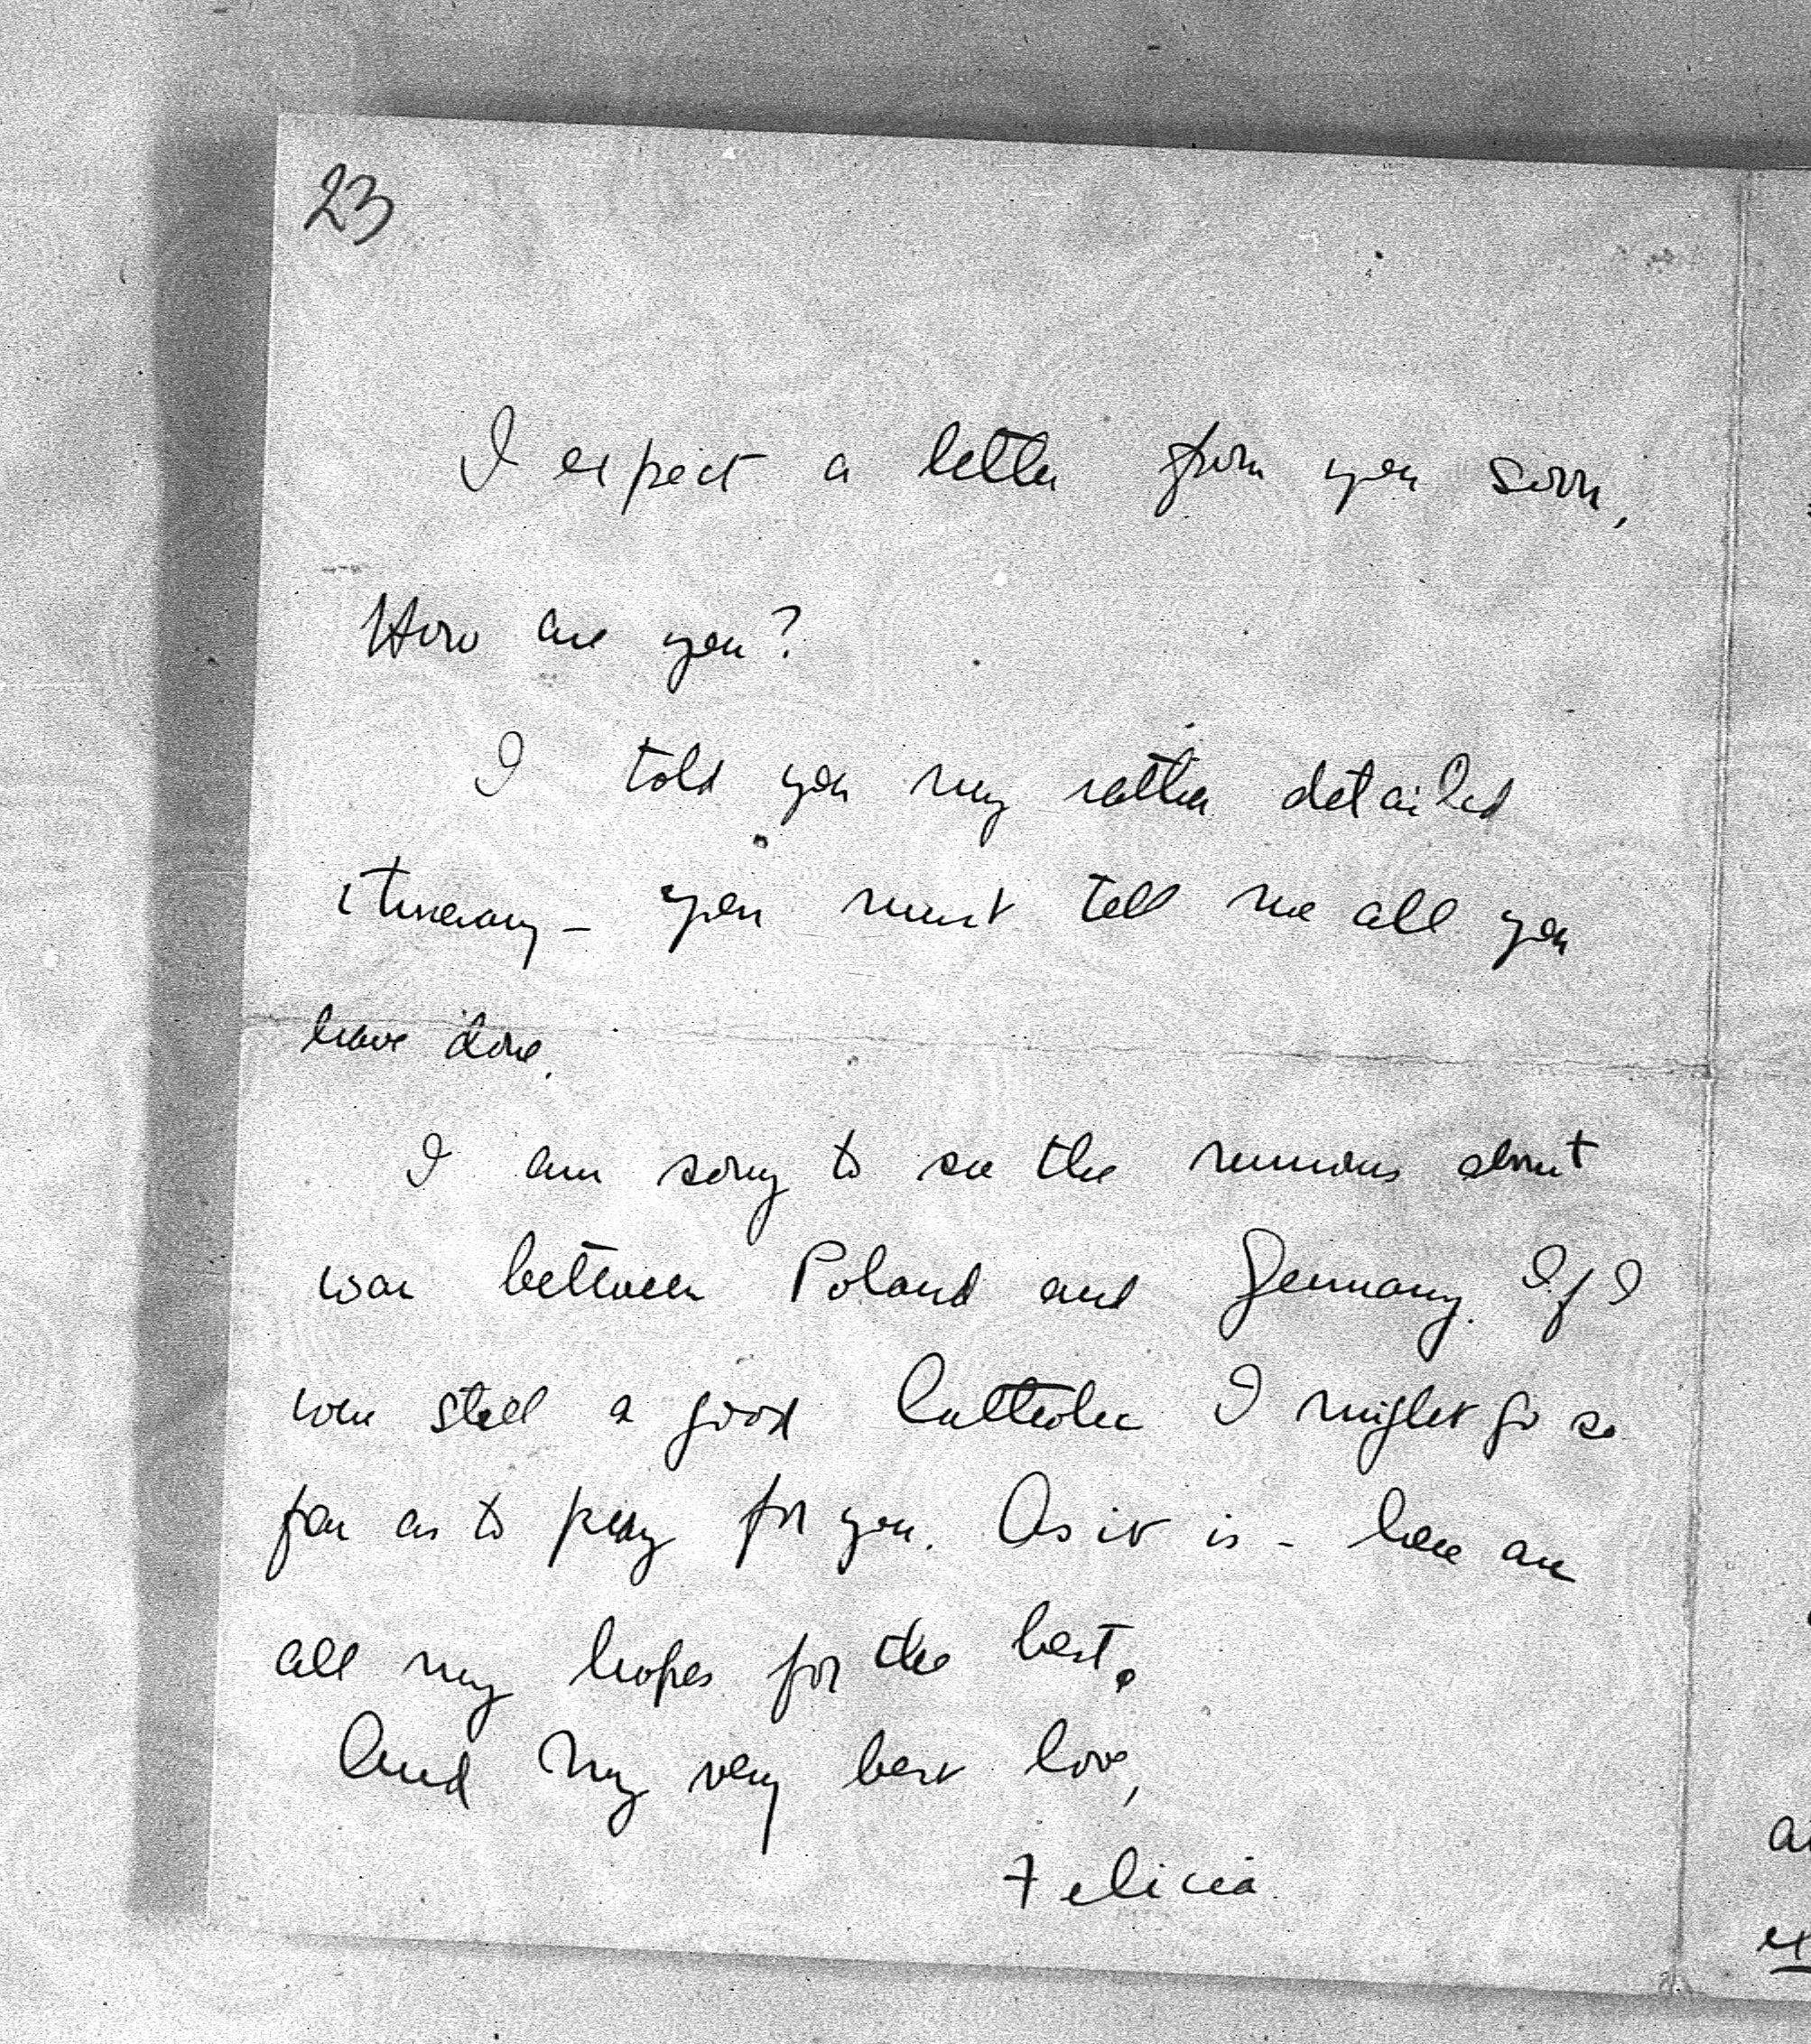 23
I expect a letter from you soon,
How are you?
I told you my rather detailed
itinerary - you must tell me all you
have done.
I am sorry to see the rumours about
war between Poland and Germany. If I
were still a good Catholic I might go so
far as to pray for you. As it is - here are
all my hopes for the best.
And my very best love,
Felicia